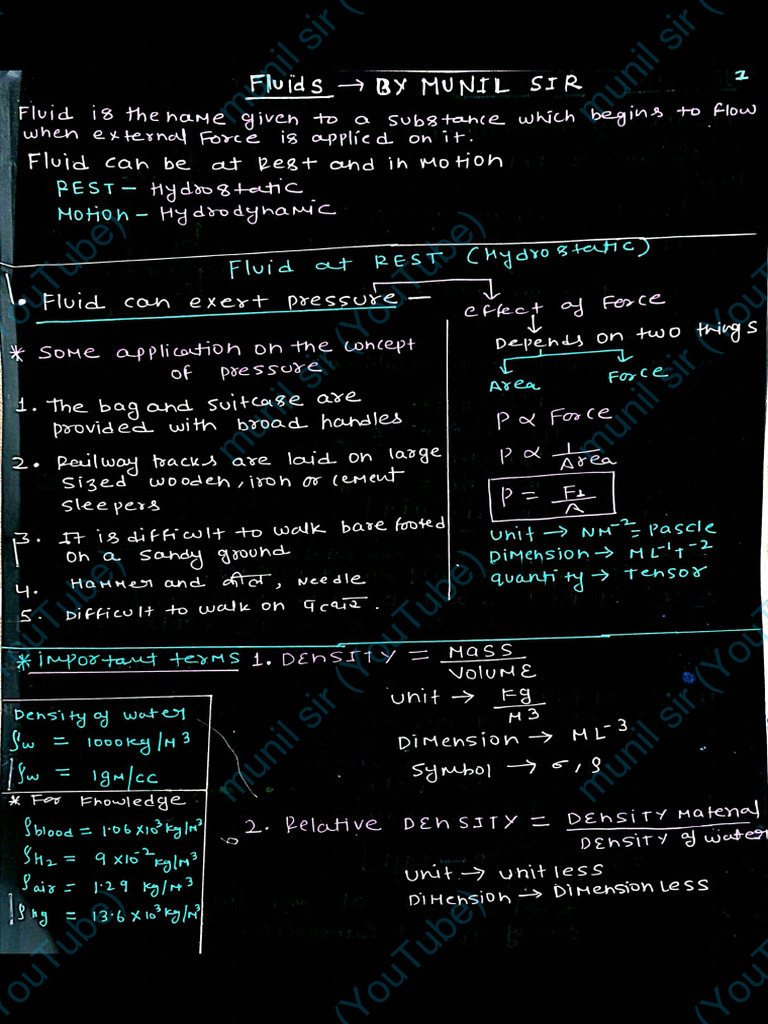 Fluids → BY MUNIL SIR
1
Fluid is the name given to a substance which begins to flow
when external Force is applied on it.
Fluid can be at Rest and in Motion
REST – Hydrostatic
Motion – Hydrodynamic
Fluid at REST (Hydrostatic)
• Fluid can exert pressure –
effect of Force
Depends on two things
Area
Force
P ∝ Force
P ∝ 1/Area
P = F⊥/A
unit → NM⁻² = Pascle
Dimension → ML⁻¹T⁻²
quantity → Tensor
* Some application on the concept
of pressure
1. The bag and suitcase are
provided with broad handles
2. Railway tracks are laid on large
sized wooden, iron or cement
sleepers
3. It is difficult to walk bare footed
on a sandy ground
4. Hammer and कील, Needle
5. Difficult to walk on
* important terms 1. DENSITY = MASS/VOLUME
unit → Kg/M³
Dimension → ML⁻³
Symbol → σ, ρ
Density of water
ρw = 1000kg/M³
ρw = 1gM/cc
* For Knowledge
ρblood = 1.06 ×10³ kg/M³
ρH₂ = 9 ×10⁻² kg/M³
ρair = 1.29 kg/M³
ρHg = 13.6 ×10³ kg/M³
2. Relative DENSITY = DENSITY Material/DENSITY of water
unit → unit less
Dimension → Dimension Less
munil sir (YouTube)